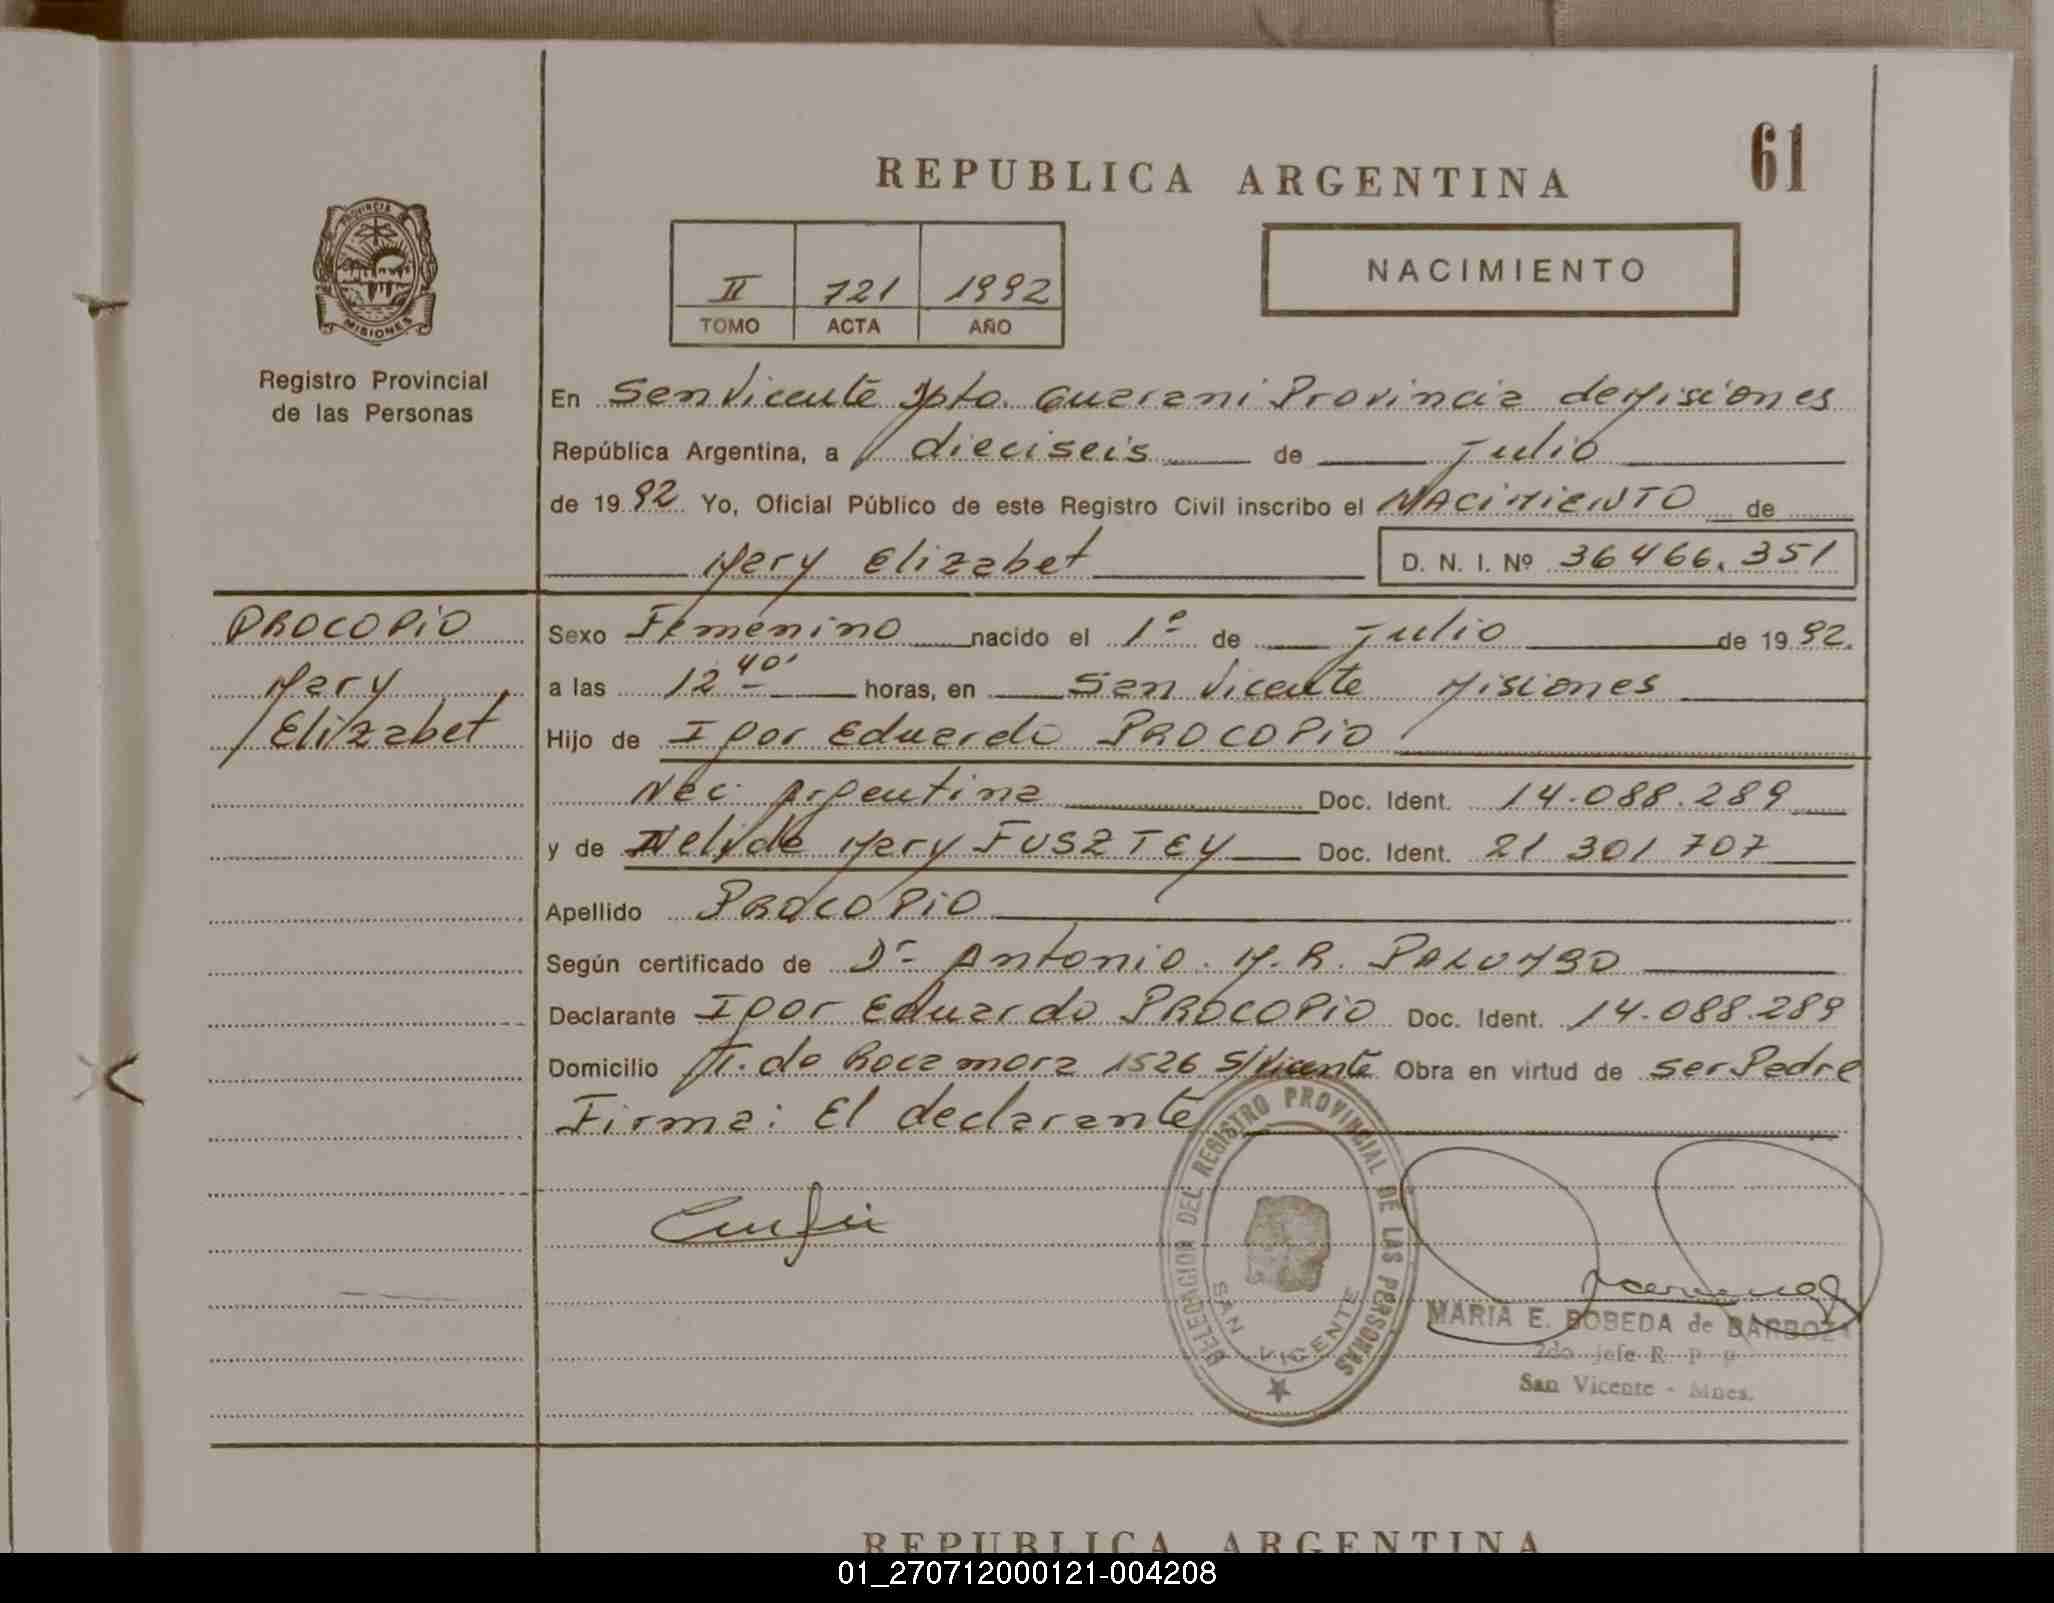 61
REPUBLICA ARGENTINA
PROVINCIA DE
MISIONES
II 721 1992
TOMO ACTA AÑO
NACIMIENTO
Registro Provincial
de las Personas
En San Vicente Dpto. Guarani Provincia de Misiones
República Argentina, a dieciseis de Julio
de 1992 Yo, Oficial Público de este Registro Civil inscribo el NACIMIENTO de
Mary Elizabet D. N. I. Nº 36466.351
PROCOPIO
Mary
Elizabet
Sexo Femenino nacido el 1º de Julio de 1992.
a las 12 40' horas, en San Vicente Misiones
Hijo de Igor Eduardo PROCOPIO
Nac. Argentina Doc. Ident. 14.088.289
y de Nelida Mary FUSZTEY Doc. Ident. 21 301 707
Apellido PROCOPIO
Según certificado de Dr Antonio. M. R. PALUMBO
Declarante Igor Eduardo PROCOPIO Doc. Ident. 14.088.289
Domicilio T. de Rocamora 1526 S/Vicente Obra en virtud de ser Padre
Firma: El declarante
DELEGACION DEL REGISTRO PROVINCIAL DE LAS PERSONAS
SAN VICENTE
MARIA E. BOBEDA de BARBOZA
2do jefe R. p. p
San Vicente - Mnes.
REPUBLICA ARGENTINA
01_270712000121-004208